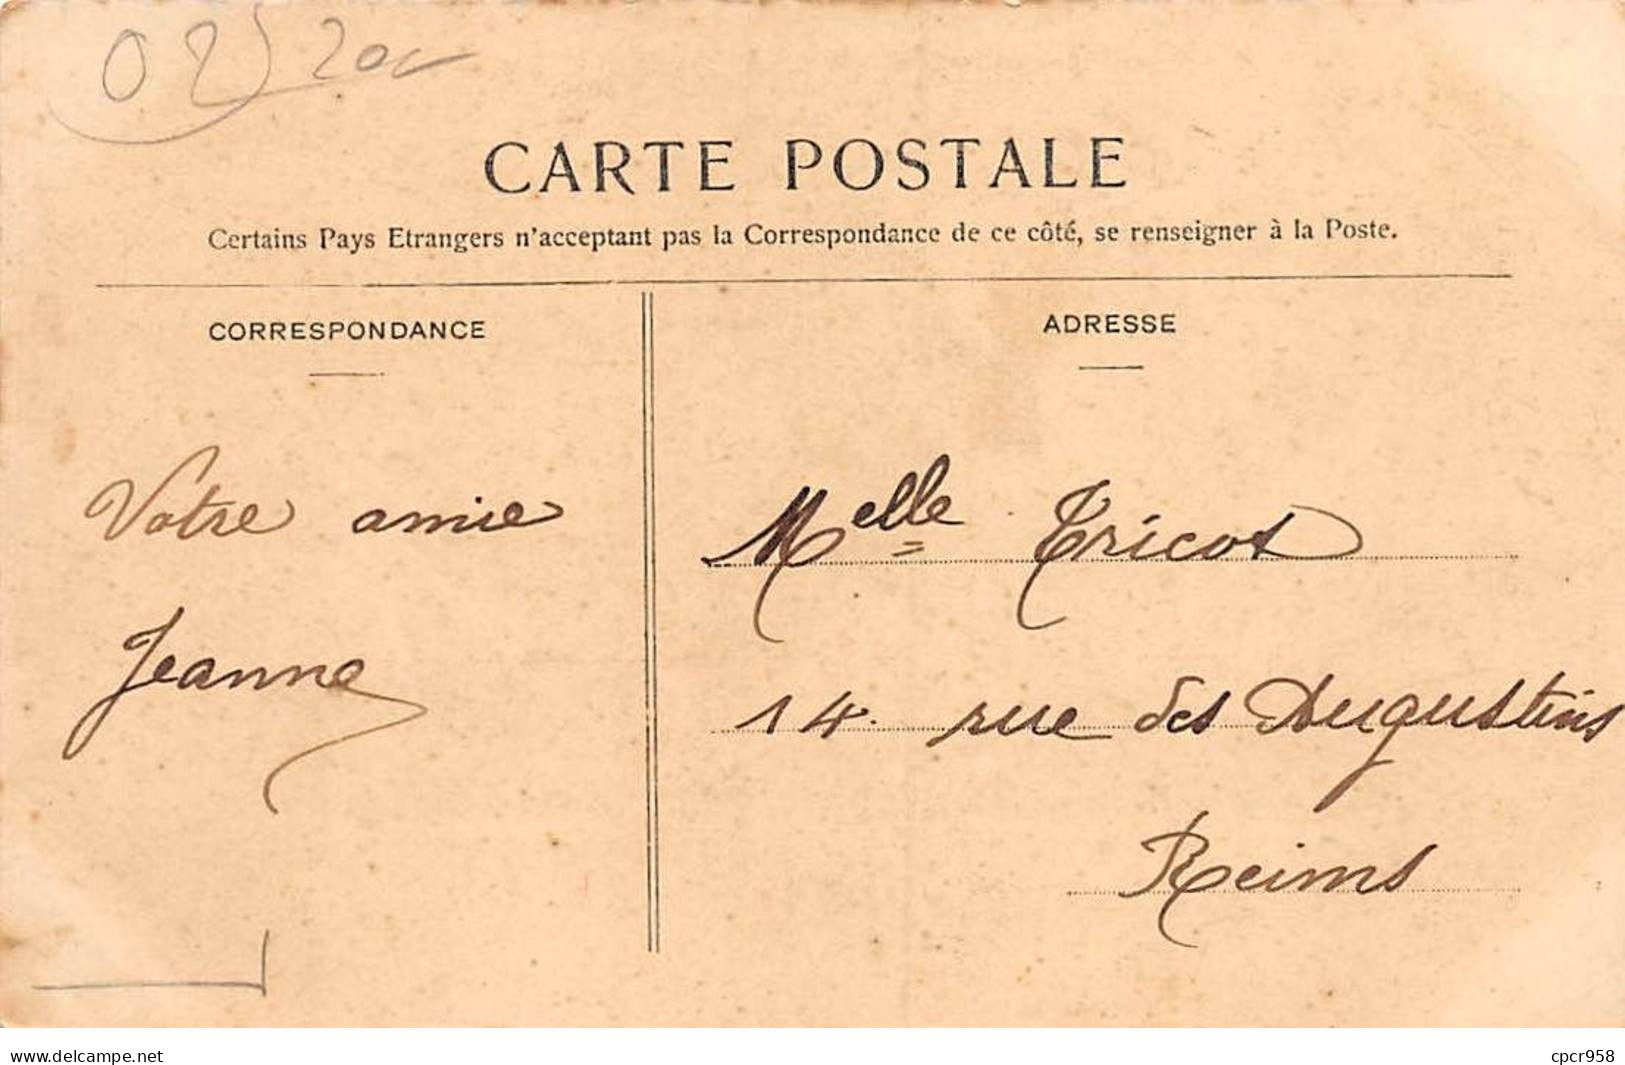 02 20c
CARTE POSTALE
Certains Pays Etrangers n'acceptant pas la Correspondance de ce côté, se renseigner à la Poste.
CORRESPONDANCE
ADRESSE
Votre amie
Jeanne
Melle Tricot
14 rue des Augustins
Reims
www.delcampe.net
cpcr958